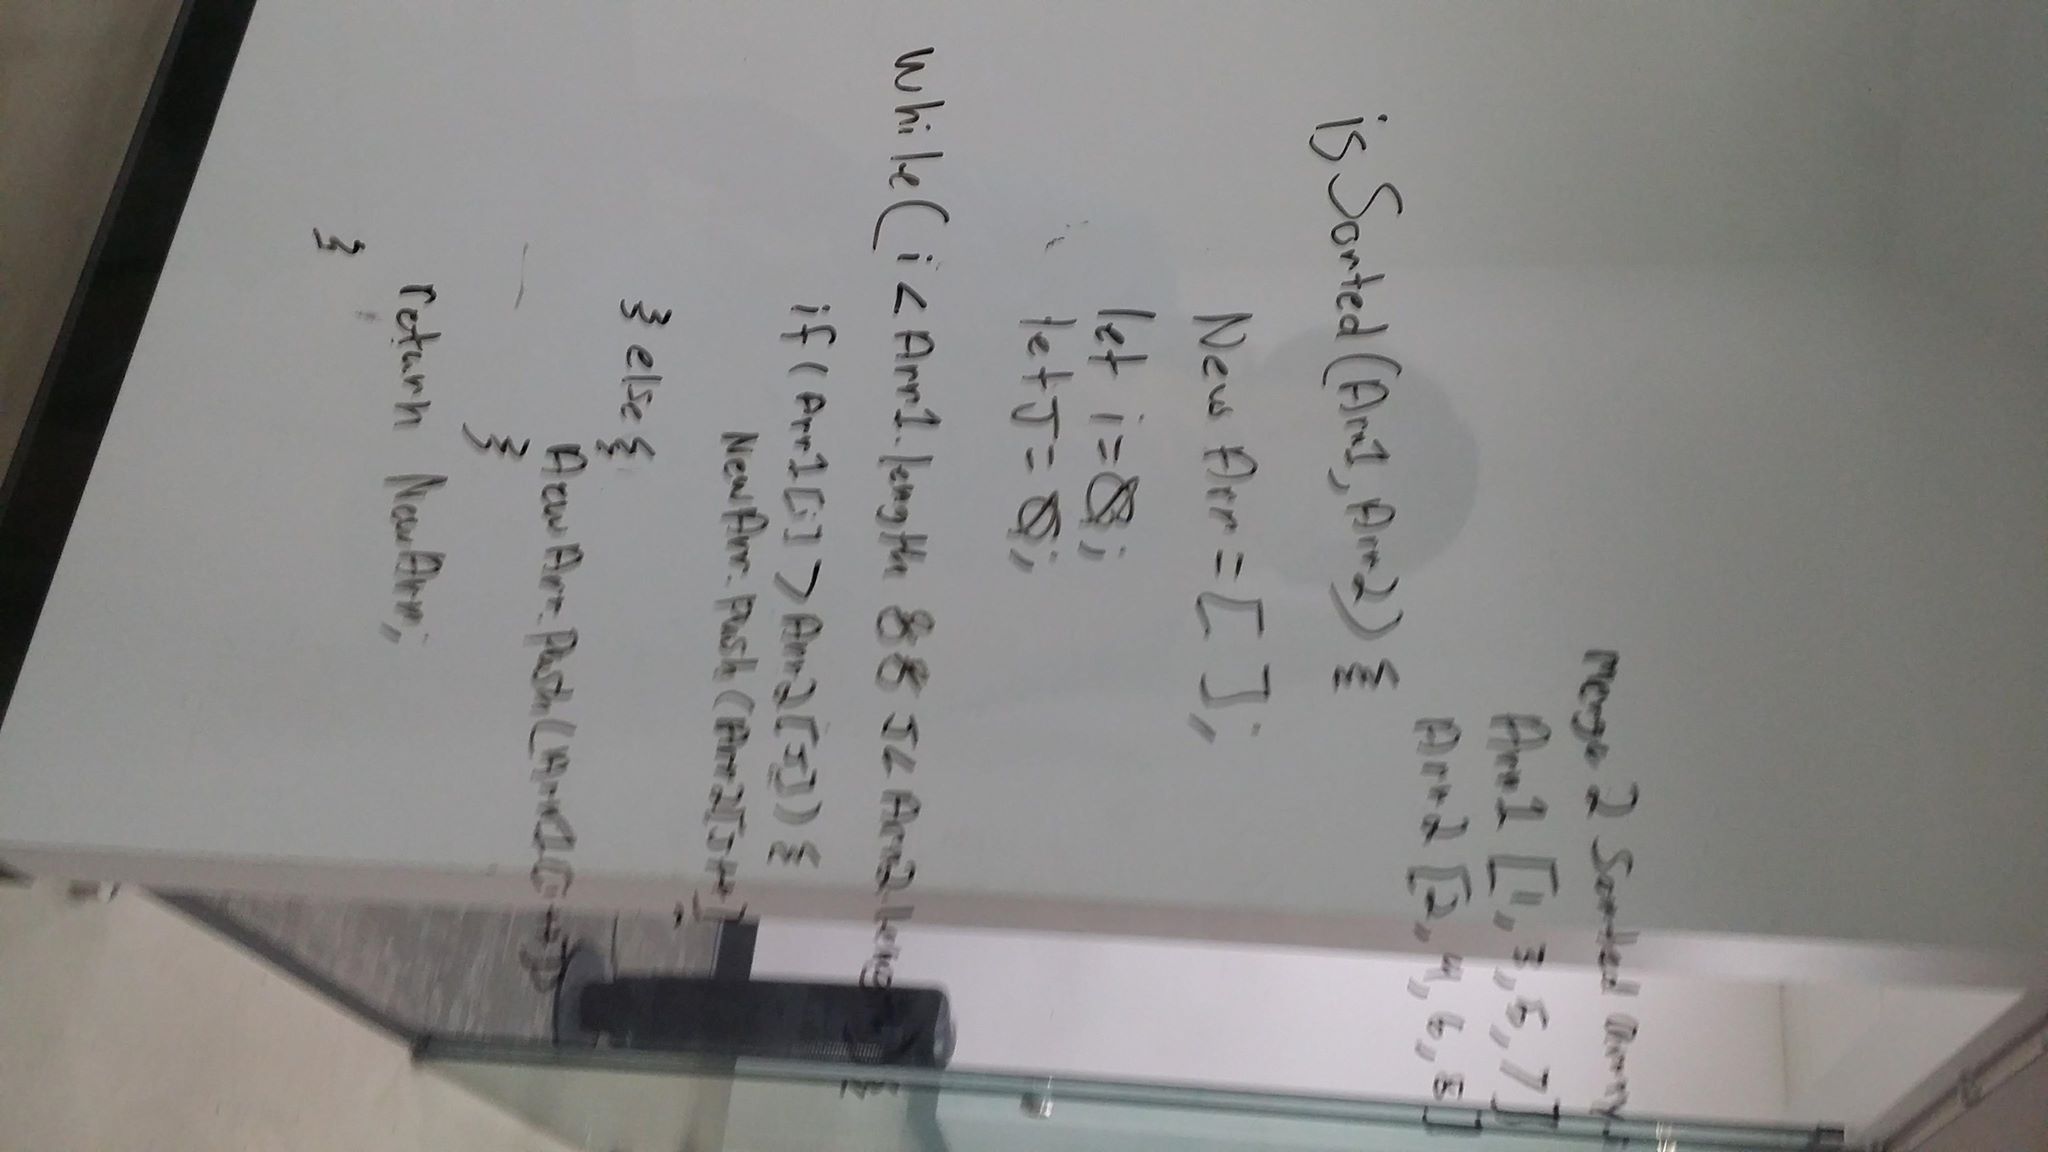 merge 2 Sorted arrays
Arr1 [1, 3, 5, 7]
Arr2 [2, 4, 6, 8]
isSorted(Arr1, Arr2) {
NewArr = [ ];
let i = 0;
let J = 0;
while(i < Arr1.length && J < Arr2.length) {
if (Arr1[i] > Arr2[J]) {
NewArr.push(Arr2[J++]
} else {
NewArr.push(Arr1[i++])
}
return NewArr;
}